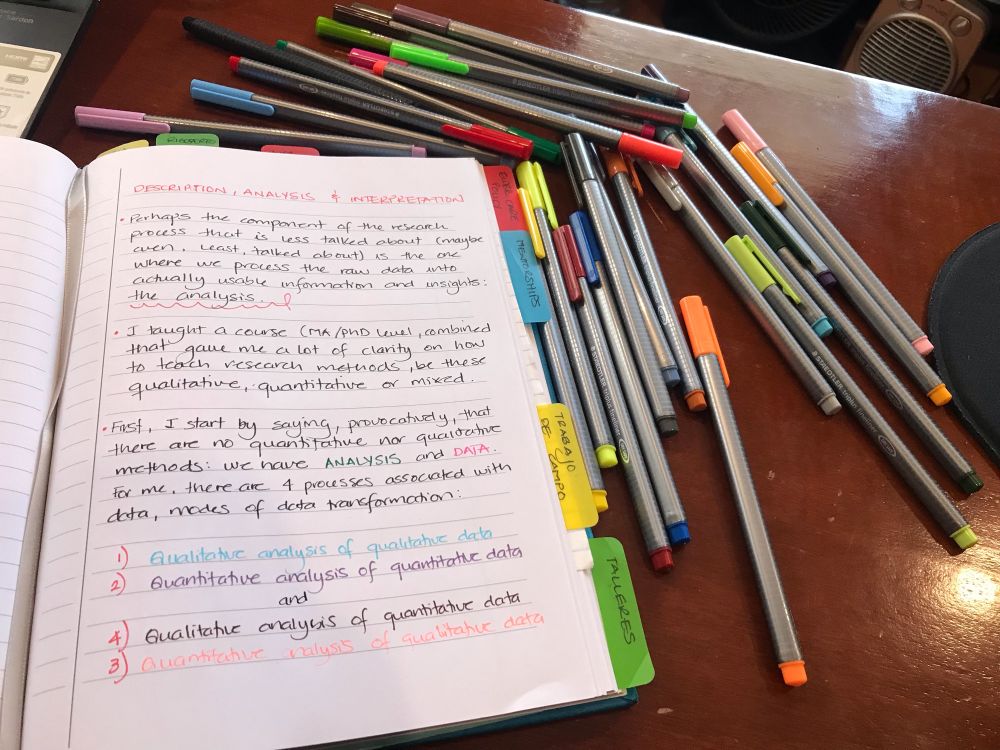 DESCRIPTION, ANALYSIS & INTERPRETATION
• Perhaps the component of the research
process that is less talked about (maybe
even, least, talked about) is the one
where we process the raw data into
actually usable information and insights:
the analysis.
• I taught a course (MA/PhD level, combined
that gave me a lot of clarity on how
to teach research methods, be these
qualitative, quantitative or mixed.
• First, I start by saying, provocatively, that
there are no quantitative nor qualitative
methods: we have ANALYSIS and DATA.
For me, there are 4 processes associated with
data, modes of data transformation:
1) Qualitative analysis of qualitative data
2) Quantitative analysis of quantitative data
and
4) Qualitative analysis of quantitative data
3) Quantitative analysis of qualitative data
POLICY
MENTORSHIPS
TRABAJO
DE CAMPO
TALLERES
STAEDTLER triplus fineliner
STAEDTLER triplus fineliner
STAEDTLER triplus fineliner